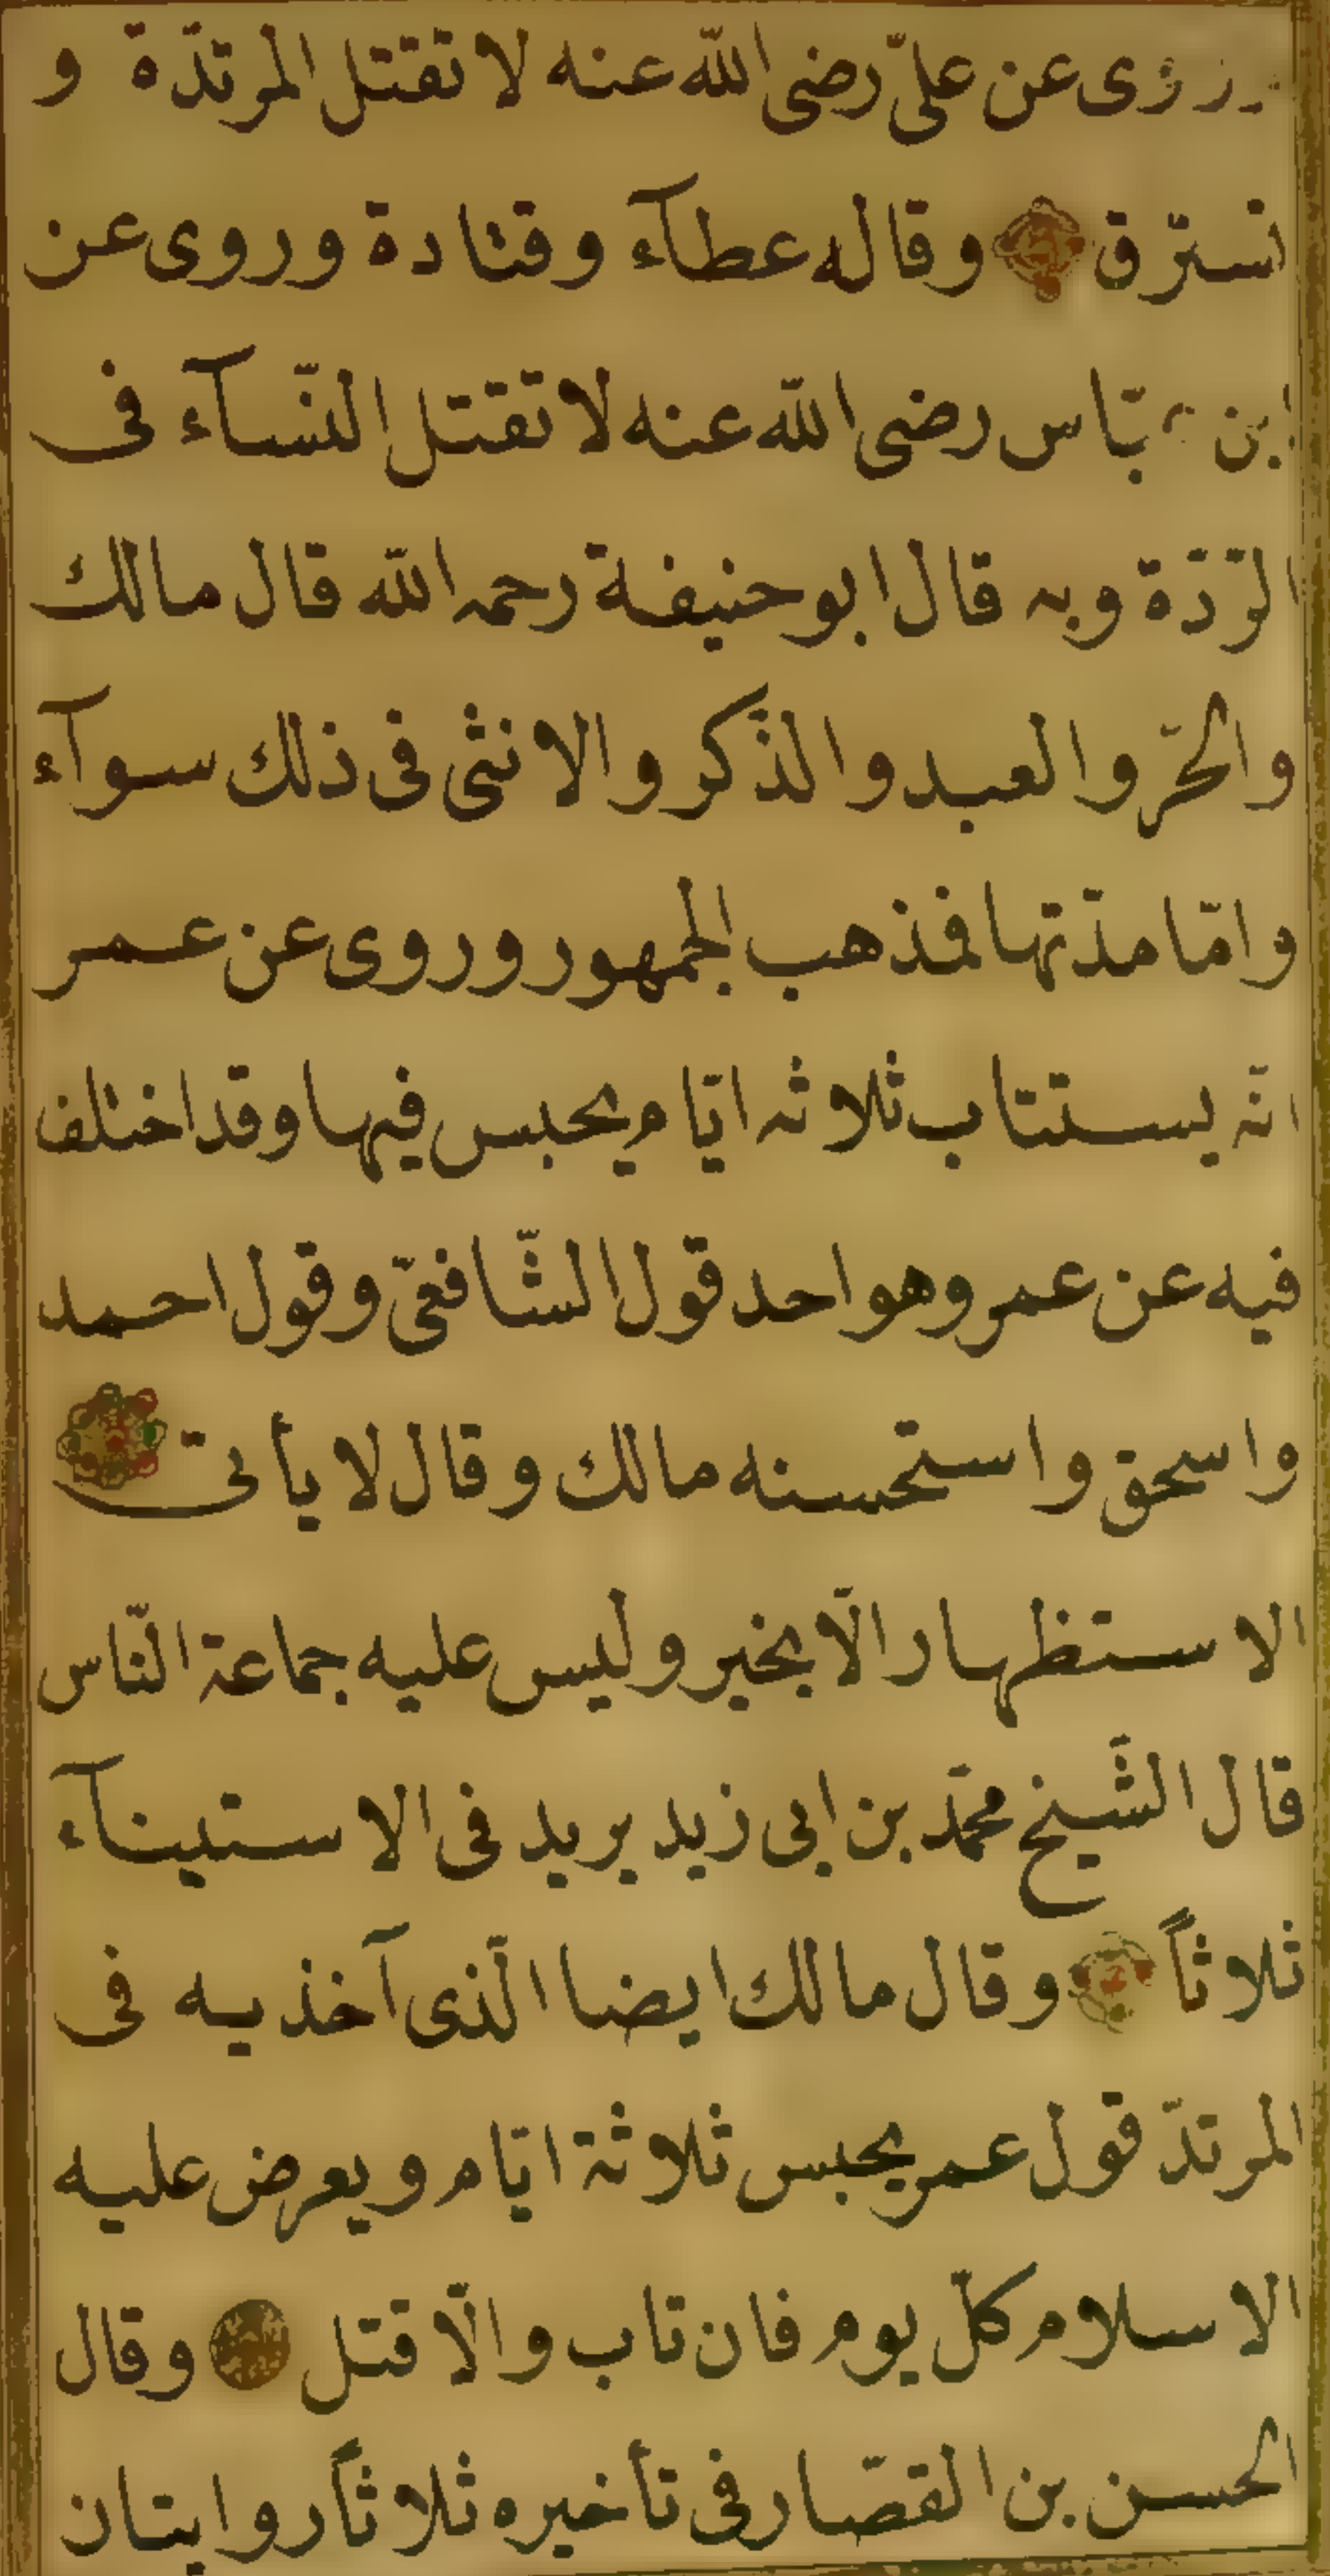 وروى عن علىّ رضى الله عنه لا تقتل المرتدّة و
تسترّق وقاله عطآء وقتادة وروى عن
ابن عبّاس رضى الله عنه لا تقتل النّسآء فى
الرّدّة وبه قال ابو حنيفة رحمه الله قال مالك
والحرّ والعبد والذّكر والانثى فى ذلك سوآء
وامّا مدّتها فمذهب الجمهور وروى عن عمر
انّه يستتاب ثلاثه ايّام يحبس فيها وقد اختلف
فيه عن عمر وهو احد قول الشّافعىّ وقول احمد
واسحق واستحسنه مالك وقال لا يأتى
الاستظهار الّا بخير وليس عليه جماعة النّاس
قال الشّيخ محمّد بن ابى زيد يريد فى الاستيناآء
ثلاثاً وقال مالك ايضا الّذى آخذ به فى
المرتدّ قول عمر يحبس ثلاثة ايّام ويعرض عليه
الاسلام كلّ يوم فان تاب والّا قتل وقال
الحسن بن القصّار فى تأخيره ثلاثاً روايتان